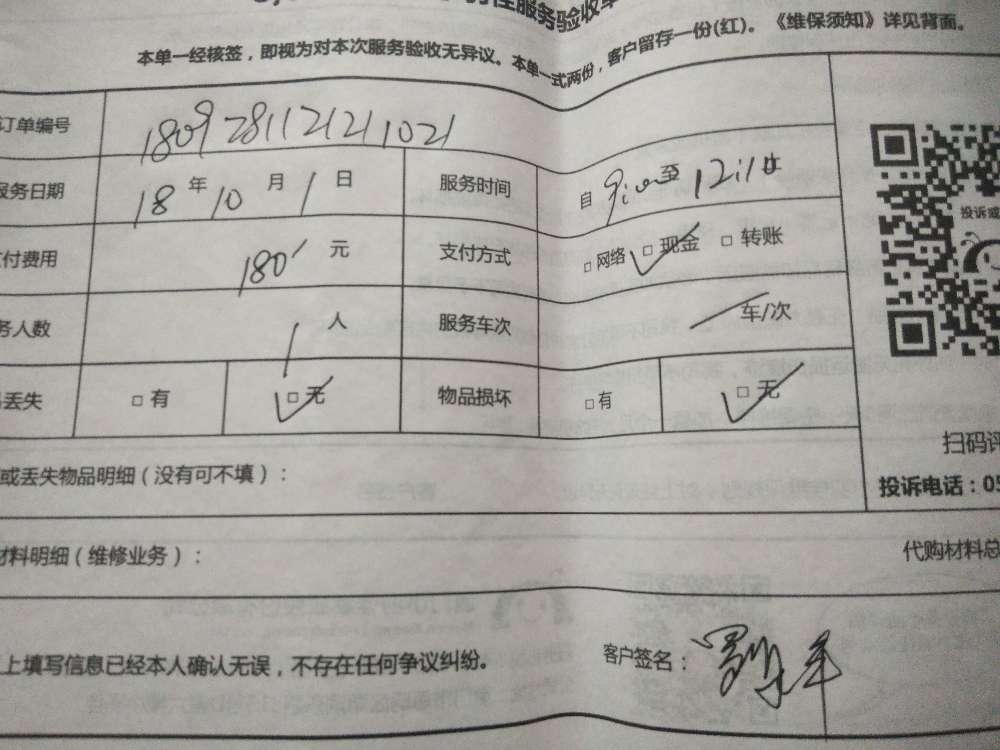 性服务验收单
本单一经核签，即视为对本次服务验收无异议。本单一式两份，客户留存一份(红)。《维保须知》详见背面。
订单编号 180928112121021
服务日期 18年10月1日 服务时间 自9:00至12:10
付费用 180元 支付方式 □网络 □现金 □转账
务人数 1人 服务车次 车/次
丢失 □有 □无 物品损坏 □有 □无
投诉或
扫码评
或丢失物品明细（没有可不填）：
投诉电话：05
材料明细（维修业务）：
代购材料总
上填写信息已经本人确认无误，不存在任何争议纠纷。
客户签名：